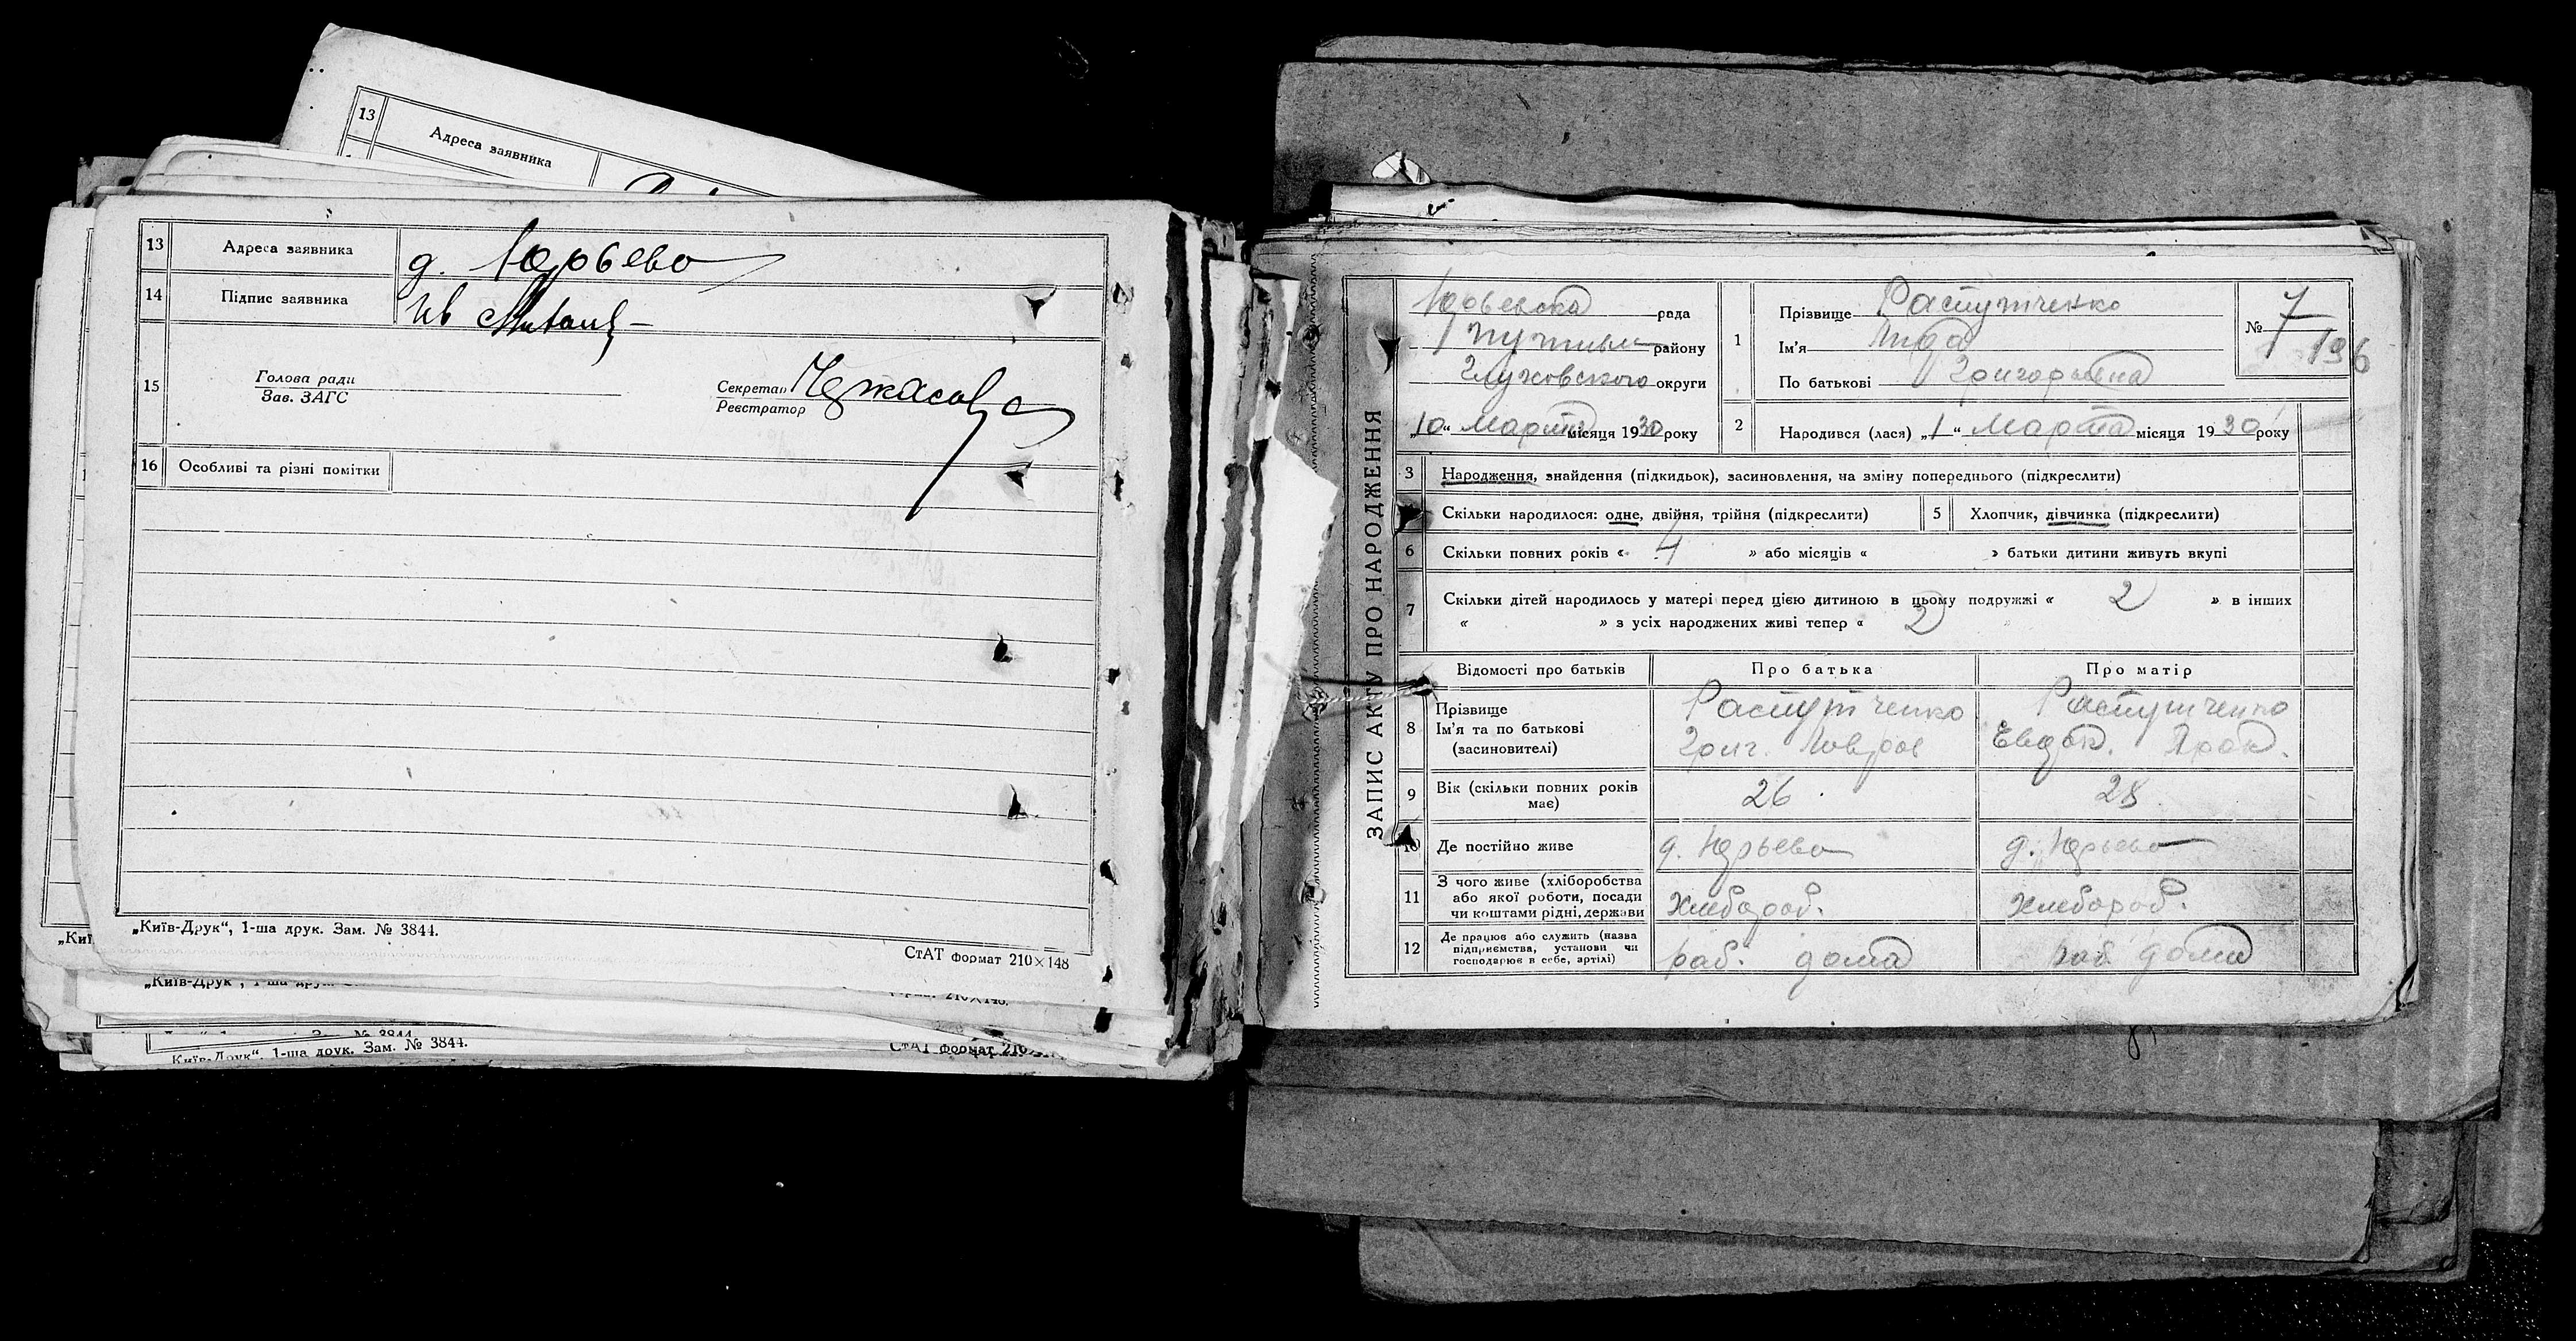 13
Адреса заявника
13 Адреса заявника д. Юрьево
14 Підпис заявника Ив
15 Голова ради
Зав. ЗАГС
Секретар
Реєстратор
16 Особливі та різні помітки
„Київ-Друк“, 1-ша друк. Зам. № 3844.
СтАТ формат 210×148
„Київ-Друк“, 1-ша друк.
Зам. № 3844
Київ-Друк“, 1-ша друк. Зам. № 3844.
СтАТ формат 210
ЗАПИС АКТУ ПРО НАРОДЖЕННЯ
Юрьевска рада
Путивл району
Глуховського округи
„10“ Марта місяця 1930 року
1 Прізвище Распутченко
Ім'я Лида
По батькові Григорьевна
№ 7
196
2 Народився (лася) „1“ Марта місяця 1930 року
3 Народження, знайдення (підкидьок), засиновлення, на зміну попереднього (підкреслити)
Скільки народилося: одне, двійня, трійня (підкреслити)
5 Хлопчик, дівчинка (підкреслити)
6 Скільки повних років « 4 » або місяців « » батьки дитини живуть вкупі
7 Скільки дітей народилось у матері перед цією дитиною в цьому подружжі « 2 » в інших
« » з усіх народжених живі тепер « 2
Відомості про батьків Про батька Про матір
8 Прізвище
Ім'я та по батькові
(засиновителі)
Распутченко
Григ. Лавров
Распутченко
Евдок. Прок.
9 Вік (скільки повних років має) 26 28
10 Де постійно живе д. Юрьево д. Юрьево
11 З чого живе (хліборобства
або якої роботи, посади
чи коштами рідні, держави
хлебороб. хлебороб.
12 Де працює або служить (назва
підприємства, установи чи
господарює в себе, артілі)
раб. дома раб дома